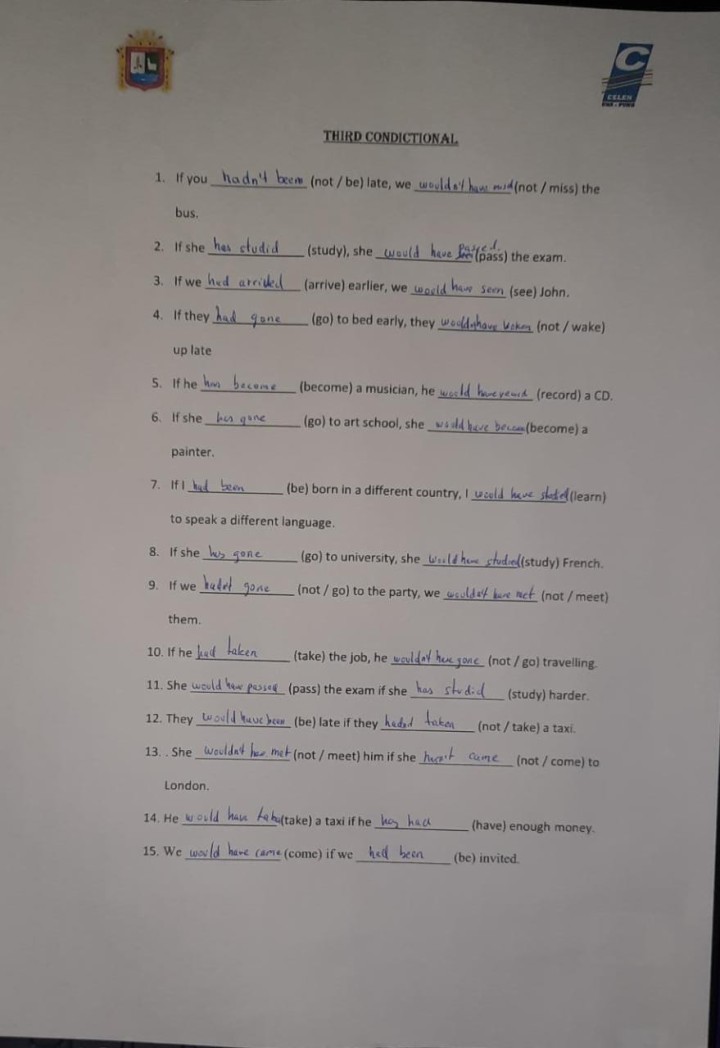 CELEN
UNA - PUNO
THIRD CONDICTIONAL
1. If you hadn't been (not / be) late, we wouldn't have misd (not / miss) the
bus.
2. If she has studid (study), she would have passed (pass) the exam.
3. If we had arrived (arrive) earlier, we would have seen (see) John.
4. If they had gone (go) to bed early, they (not / wake)
up late
5. If he has become (become) a musician, he would have (record) a CD.
6. If she has gone (go) to art school, she would have (become) a
painter.
7. If I had been (be) born in a different country, I would have (learn)
to speak a different language.
8. If she has gone (go) to university, she would have studied (study) French.
9. If we hadn't gone (not / go) to the party, we wouldn't have met (not / meet)
them.
10. If he had taken (take) the job, he wouldn't have gone (not / go) travelling.
11. She would have passed (pass) the exam if she has studid (study) harder.
12. They would have been (be) late if they taken (not / take) a taxi.
13. . She wouldn't met (not / meet) him if she came (not / come) to
London.
14. He would have (take) a taxi if he has had (have) enough money.
15. We would have came (come) if we had been (be) invited.